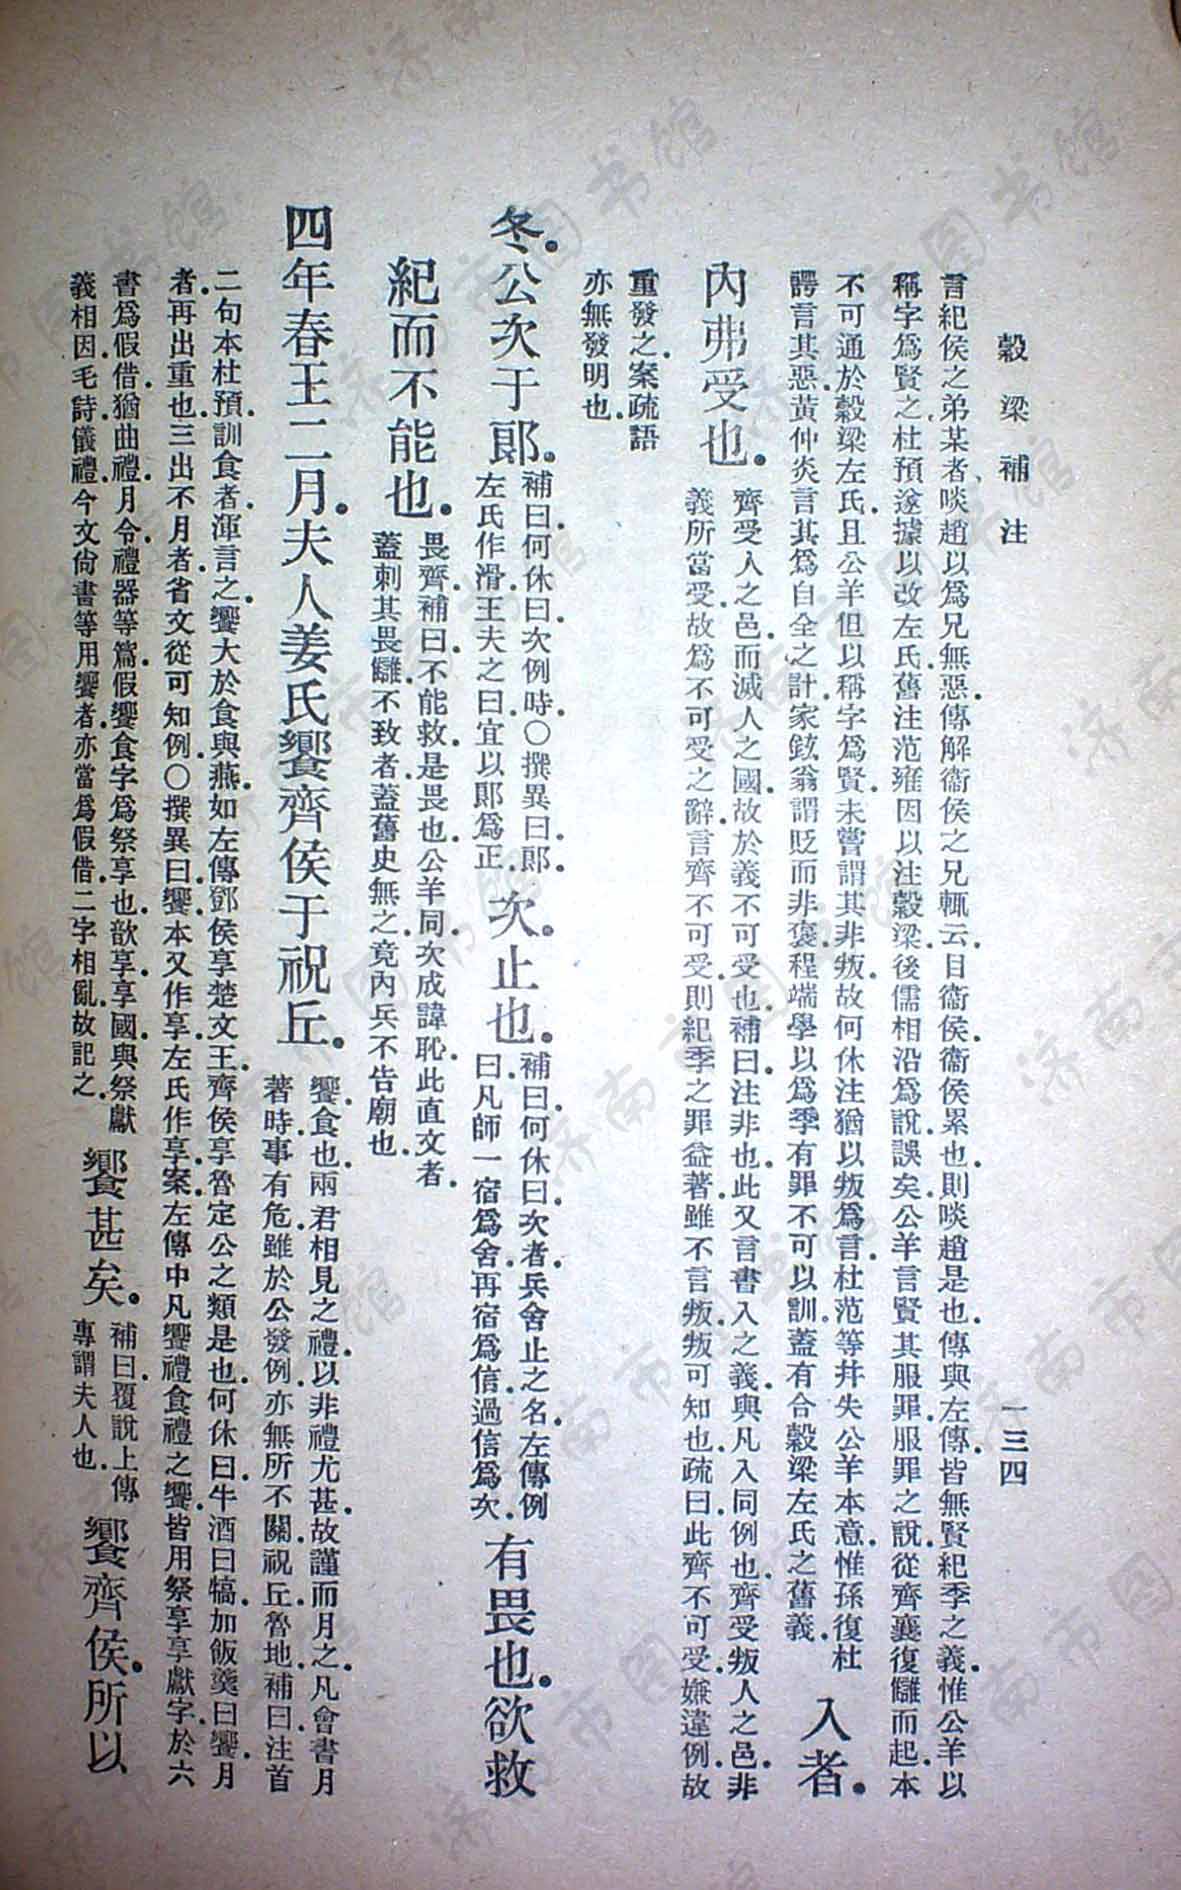 穀梁補注
一三四
言紀侯之弟某者啖趙以爲兄無惡傳解衞侯之兄輒云目衞侯衞侯累也則啖趙是也傳與左傳皆無賢紀季之義惟公羊以
稱字爲賢之杜預遂據以改左氏舊注范雍因以注穀梁後儒相沿爲說誤矣公羊言賢其服罪服罪之說從齊襄復讎而起本
不可通於穀梁左氏且公羊但以稱字爲賢未嘗謂其非叛故何休注猶以叛爲言杜范等幷失公羊本意惟孫復杜
諤言其惡黃仲炎言其爲自全之計家鉉翁謂貶而非褒程端學以爲季有罪不可以訓蓋有合穀梁左氏之舊義
入者
內弗受也
齊受人之邑而滅人之國故於義不可受也補曰注非也此又言書入之義與凡入同例也齊受叛人之邑非
義所當受故爲不可受之辭言齊不可受則紀季之罪益著雖不言叛叛可知也疏曰此齊不可受嫌違例故
重發之案疏語
亦無發明也
冬公次于郎
補曰何休曰次例時○撰異曰郎
左氏作滑王夫之曰宜以郎爲正
次止也
補曰何休曰次者兵舍止之名左傳例
曰凡師一宿爲舍再宿爲信過信爲次
有畏也欲救
紀而不能也
畏齊補曰不能救是畏也公羊同次成諱恥此直文者
蓋刺其畏讎不致者蓋舊史無之竟內兵不告廟也
四年春王二月夫人姜氏饗齊侯于祝丘
饗食也兩君相見之禮以非禮尤甚故謹而月之凡會書月
著時事有危雖於公發例亦無所不關祝丘魯地補曰注首
二句本杜預訓食者渾言之饗大於食與燕如左傳鄧侯享楚文王齊侯享魯定公之類是也何休曰牛酒曰犒加飯羹曰饗月
者再出重也三出不月者省文從可知例○撰異曰饗本又作享左氏作享案左傳中凡饗禮食禮之饗皆用祭享享獻字於六
書爲假借猶曲禮月令禮器等篇假饗食字爲祭享也歆享享國與祭獻
義相因毛詩儀禮今文尙書等用饗者亦當爲假借二字相亂故記之
饗甚矣
補曰覆說上傳
專謂夫人也
饗齊侯所以